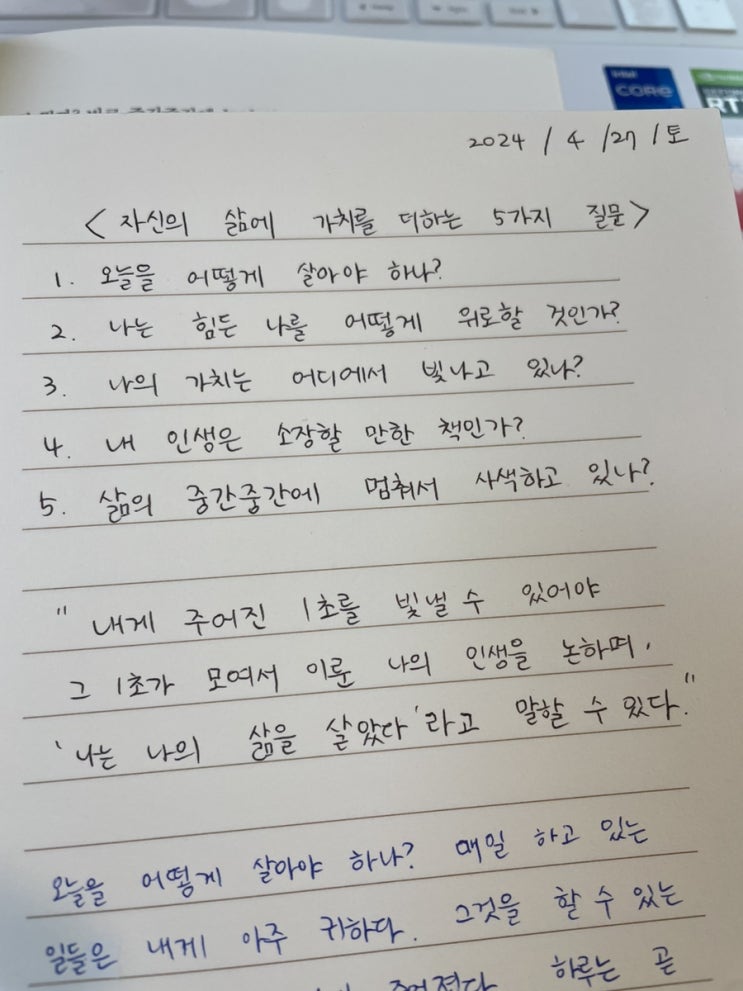 intel
CORE
RT
2024 / 4 /27 / 토
< 자신의 삶에 가치를 더하는 5가지 질문>
1. 오늘을 어떻게 살아야 하나?
2. 나는 힘든 나를 어떻게 위로할 것인가?
3. 나의 가치는 어디에서 빛나고 있나?
4. 내 인생은 소장할 만한 책인가?
5. 삶의 중간중간에 멈춰서 사색하고 있나?
" 내게 주어진 1초를 빛낼 수 있어야
그 1초가 모여서 이룬 나의 인생을 논하며,
'나는 나의 삶을 살았다'라고 말할 수 있다."
오늘을 어떻게 살아야 하나? 매일 하고 있는
일들은 내게 아주 귀하다. 그것을 할 수 있는
하루는 곧